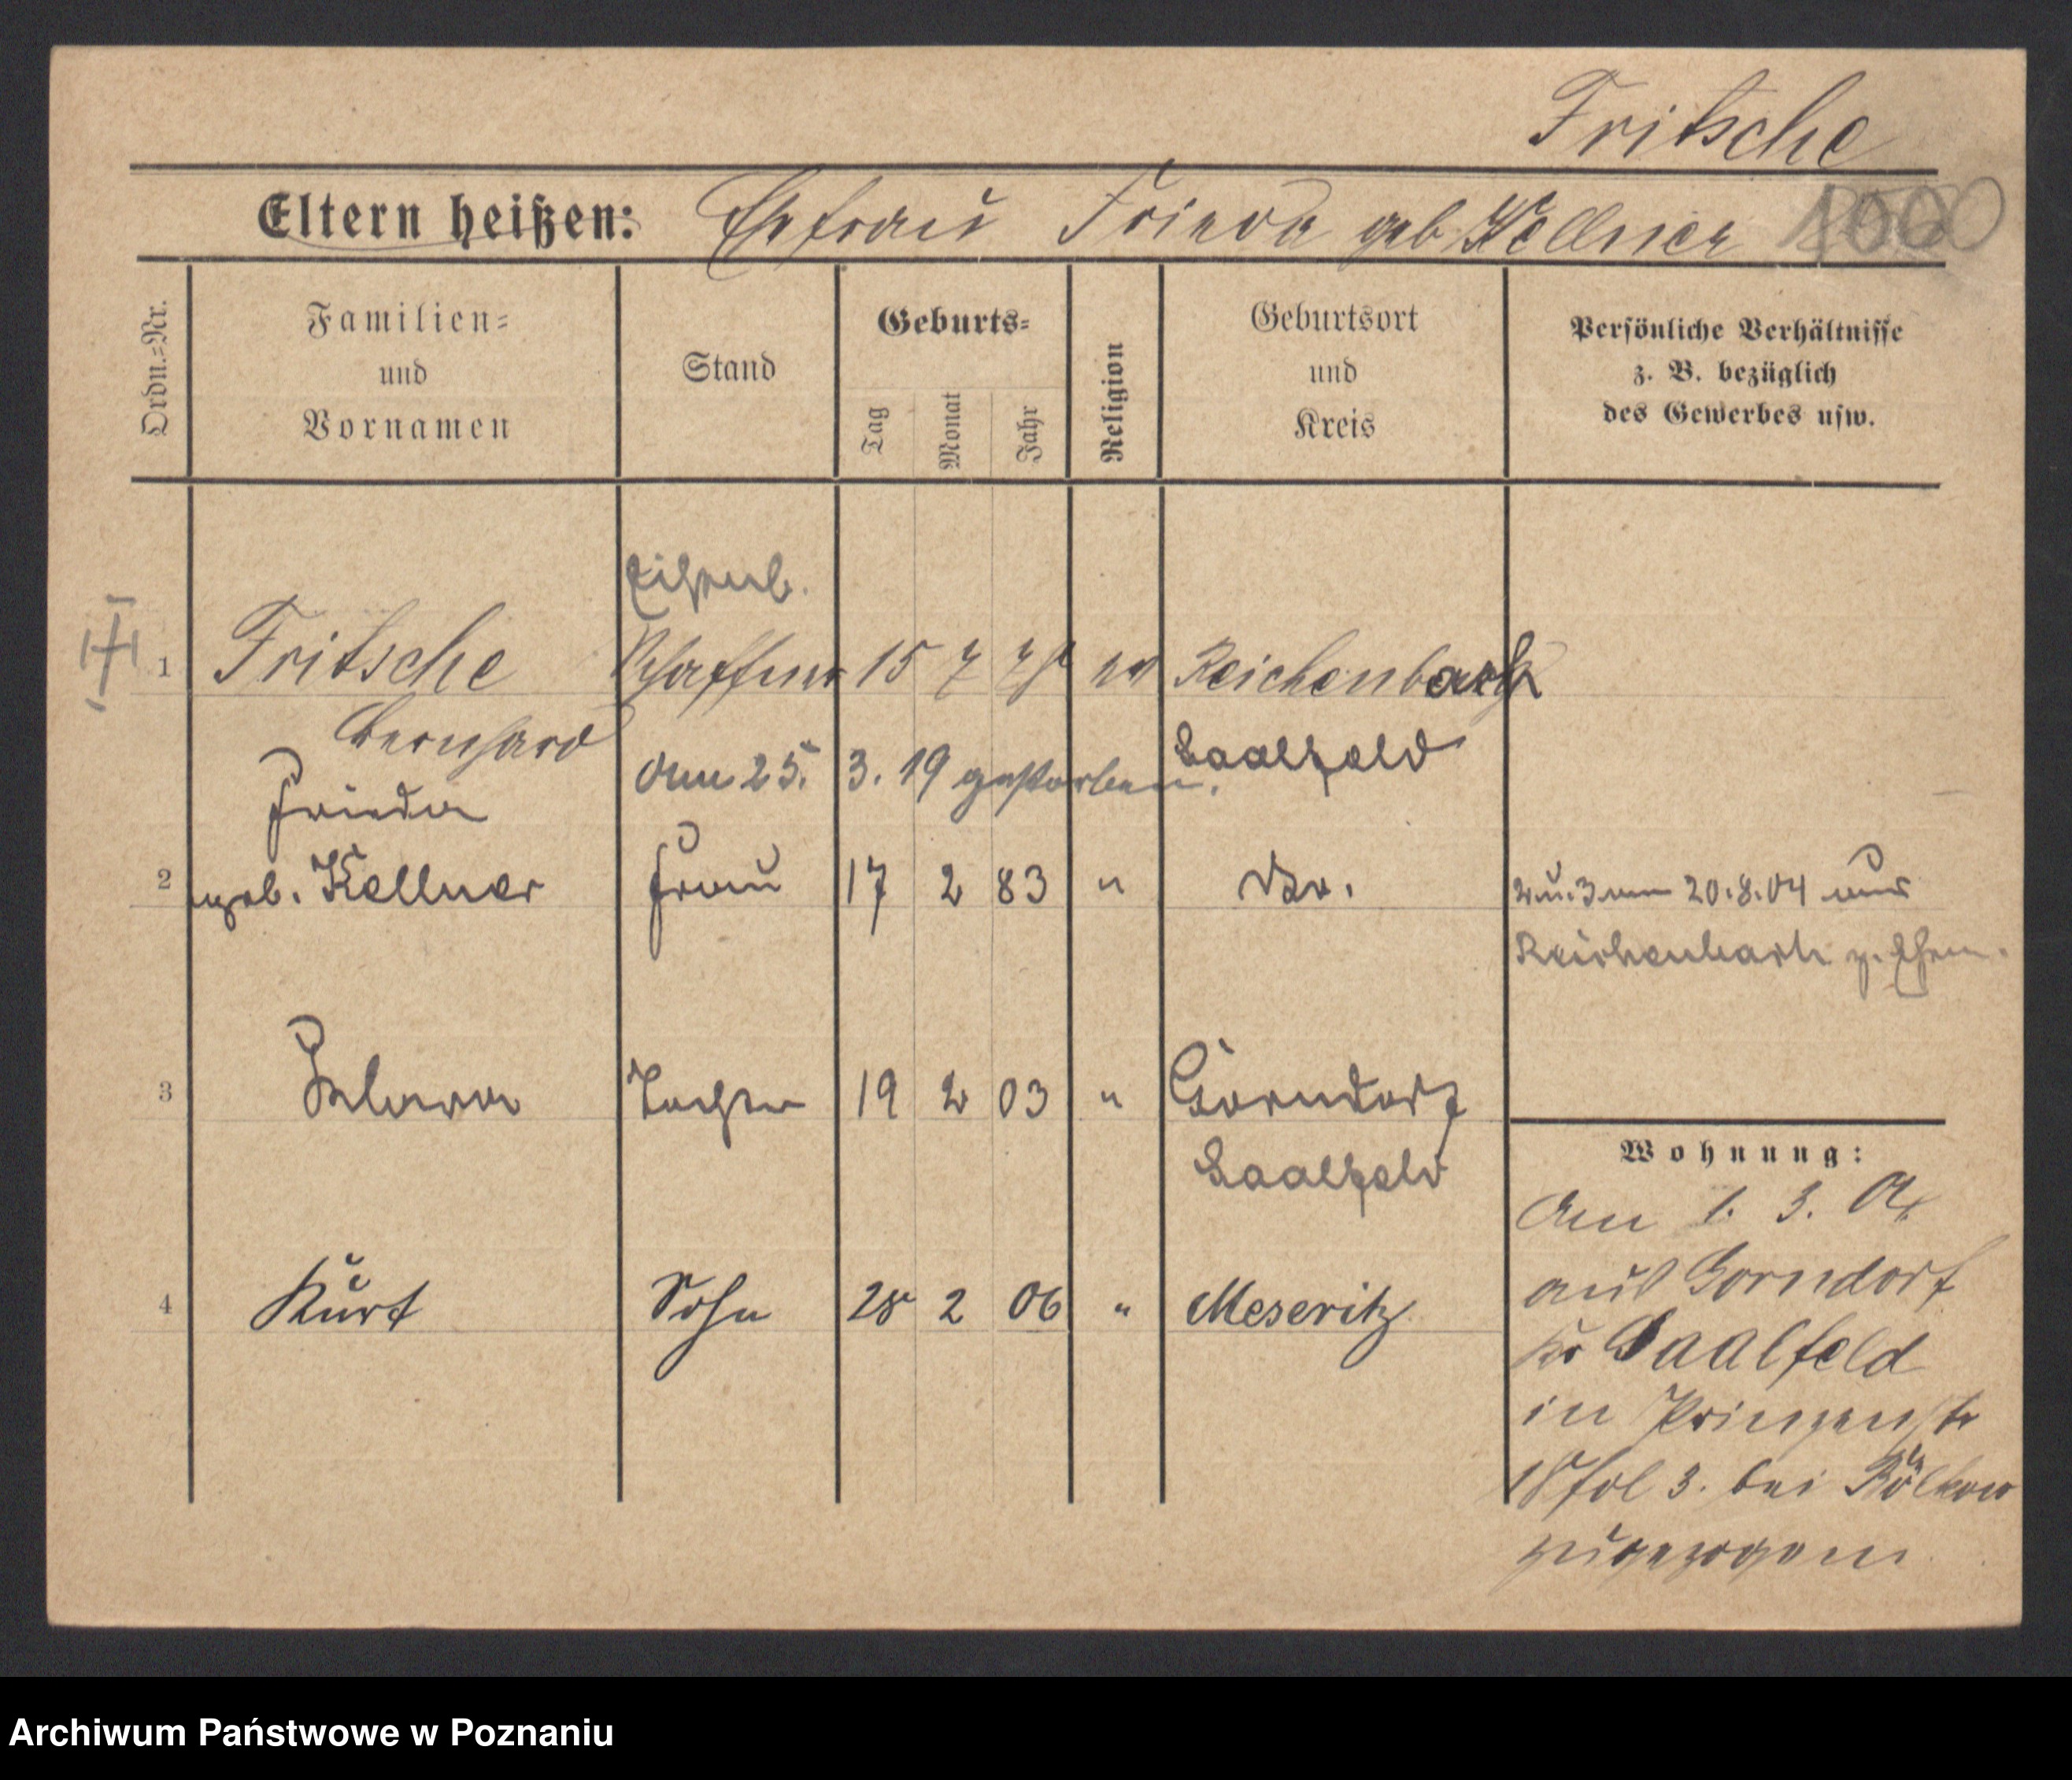 Fritsche
Eltern heißen: Ehefrau Frieda geb Kellner 1000
Ordn.=Nr.
Familien=
und
Vornamen
Stand
Geburts=
Tag
Monat
Jahr
Religion
Geburtsort
und
Kreis
Persönliche Verhältnisse
z. B. bezüglich
des Gewerbes usw.
Eisenb.
1 Fritsche Schaffner 15 7 ev Reichenbach
Bernhard
Saalfeld
am 25. 3. 19 gestorben.
Frieda
2 geb. Kellner Frau 17 2 83 " Do.
2 u. 3 am 20.8.04 aus
Reichenbach z. Ehem.
3 Tochter 19 2 03 " Gorndorf
Saalfeld
4 Kurt Sohn 28 2 06 " Meseritz
Wohnung:
Am 1. 3. 04
aus Gorndorf
Kr Saalfeld
in Prinzenstr
18 fol 3. bei Rölkow
zugezogen
Archiwum Państwowe w Poznaniu